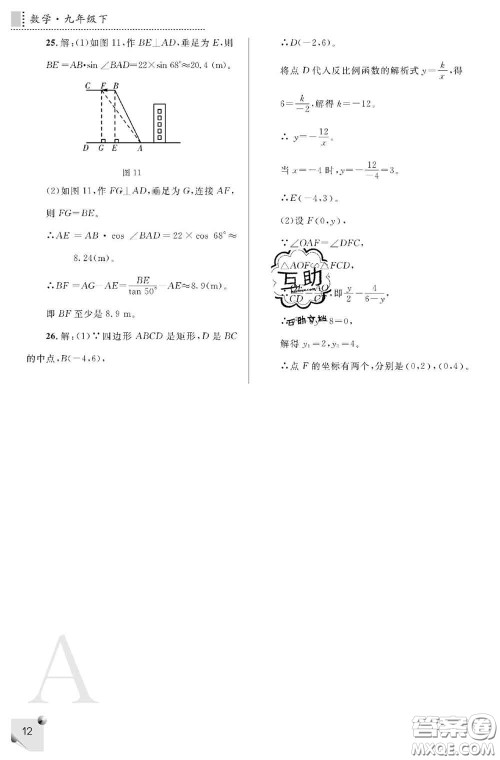 数学·九年级下
25.解:(1)如图11,作BE⊥AD,垂足为E,则
BE=AB·sin∠BAD=22×sin 68°≈20.4(m)。
C F B
D G E A
图11
(2)如图11,作FG⊥AD,垂足为G,连接AF,
则FG=BE。
∴AE=AB·cos∠BAD=22×cos 68°≈
8.24(m)。
∴BF=AG-AE=BE/tan 50°-AE≈8.9(m)。
即BF至少是8.9 m。
26.解:(1)∵四边形ABCD是矩形,D是BC
的中点,B(-4,6),
∴D(-2,6)。
将点D代入反比例函数的解析式y=k/x,得
6=k/-2,解得k=-12。
∴y=-12/x。
当x=-4时,y=-12/-4=3。
∴E(-4,3)。
(2)设F(0,y),
∵∠OAF=∠DFC,
△AOF∽△FCD,
即y/2=4/6-y,
8=0,
解得y₁=2,y₂=4。
∴点F的坐标有两个,分别是(0,2),(0,4)。
互助
互助文档
A
12
答案圈
MXQE.COM